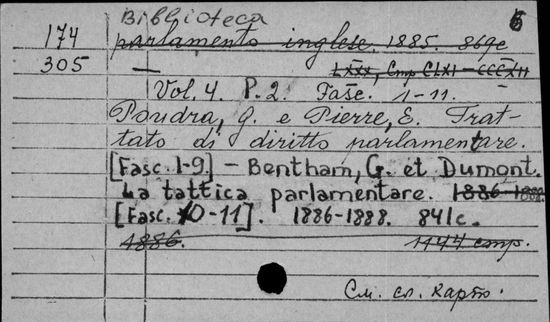 Biblioteca 6
174 parlamento inglese. 1885. 869c
305 — LXXX, Cmp CLXI-CCCXII
Vol. 4. P. 2. Fasc. 1-11.
Poudra, G. e Pierre, E. Trat-
tato di diritto parlamentare.
[Fasc. 1-9]. - Bentham, G. et Dumont.
La tattica parlamentare. 1886-1888.
[Fasc. 10-11]. 1886-1888. 841c.
1886. 1144 cmp.
См. сл. карто.